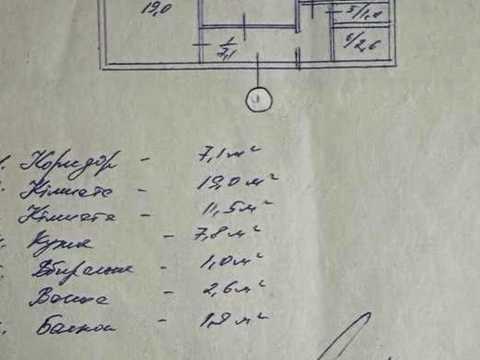 19,0
1/7,1
6/2,6
1. Коридор - 7,1 м²
Кімната - 19,0 м²
Кімната - 11,5 м²
Кухня - 7,8 м²
Вбиральня - 1,0 м²
Ванна - 2,6 м²
Балкон - 1,8 м²